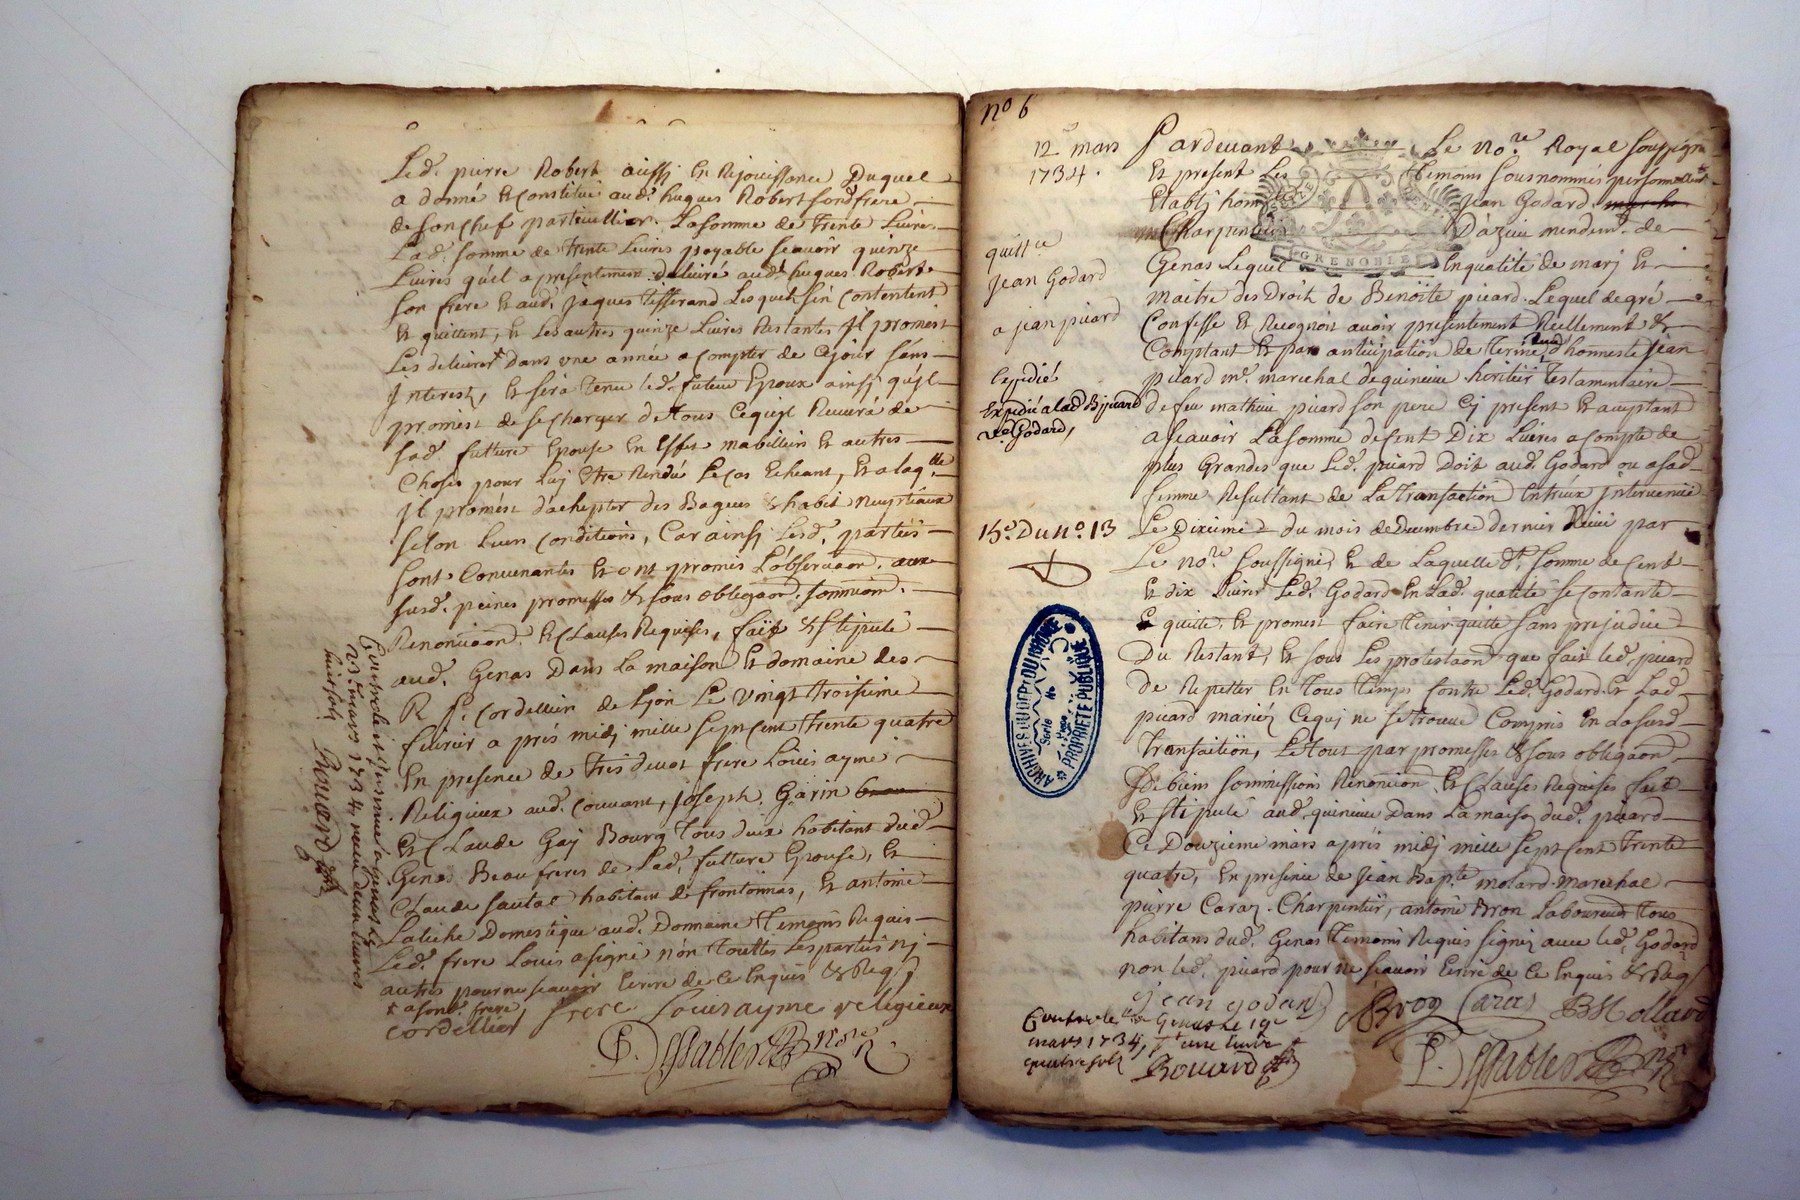 Led. pierre Robert aussi En Rejouissance Duquel
a donné Et Constitué aud. hugues Robert sond. frere
de son Chef particullier. La somme de trente Livres
Lad. somme de trente Livres payable scavoir quinze
Livres qu'il a presentement délivré aud. hugues Robert
son frere Et aud. Jaques tisserand Lesquels s'en Contentent
Et quittent, Et Les autres quinze Livres Restantes Il promest
Les delivrer Dans une année a Compter de Ce jour sans
Interest, Et sera tenu led. futeur Epoux ainsi qu'il
promest de se charger de tous Ce qu'il Recevra de
sad. futture Epouse En Effet mabilliers Et autres
Choses pour Luy Etre Rendu Le Cas Echeant, Et a laqlle
Il promest d'achepter des Bagues & habit Nuptiaux
selon Leur Conditions, Car ainsi Lesd. parties
sont Convenantes Et ont promis L'observaon. aux
susd. peines promesses & sous obligaon. sommion.
Renonciaon. Et Clauses Requises, faït & stipulé
aud. Genas Dans La maison Et domaine des
R. P. Cordelliers de Lyon Le Vingt troisieme
fevrier a prés midj mille sept Cent trente quatre
En presence de tres devot frere Loüis ayme
Religieux aud. Couvant, Joseph Garin
Et Claude Gaj Bourg tous deux habitant dud.
Genas Beaufreres de Lad. futture Epouse, Et
Claude sautal habitant de frontonnas, Et antoine
Latiche Domestique aud. Domaine temoins Requis
Led. frere Louis a signé nón touttes Les parties nj
autres pour ne scavoir Ecrire de Ce Enquis & Reqs
+ a sond. frere
frere Louis ayme religieux
Cordellier
Controlé et insinué a genas le
23e mars 1734 receu deux livres
huit sols Bouard
nº 6
12e mars
1734.
quittce
Jean Godard
a jean picard
Expedié
Expedié a lad. B. picard
ve Godard,
15e. Du nº. 13
Pardevant Le Nore. Royal soussigné
Et present Les temoins sous nommés personnellemt
Establj hom Jean Godard
Charpentier D'azieu mendemt. de
Genas Lequel En qualité de marj Et
maitre des Droit de Benoïte picard. Lequel de gré
Confesse Et Recognoit avoir presentement Reellement &
Comptant Et par anticipation de terme d'honneste Jean
picard me. marechal de quincieu heritier testamentaire
de feu mathieu picard son pere Cj present Et acceptant
a scavoir La somme de Cent Dix Livres a Compte de
plus Grandes que Led. picard Doit aud. Godard ou a sad.
femme Resultant de La transaction Entr'eux intervenüe
Le Dixieme du mois de Decembre dernier Receu par
Le nore. soussigné, Et de Laquelle de. somme de Cent
Et dix Livres Led. Godard En Lad. qualité se Contante
Et quitte. Et promest faire tenir quitte sans prejudice
Du Restant, Et sous Les protestaon. que fait Led. picard
De Repetter En tous temps Contre Led. Godard Et Lad.
picard mariés Ce quj ne se trouve Compris En La susd.
transaction, Le tout par promesses & sous obligaon.
De biens sommissions Renoncion. Et Clauses Requises fait
Et stipulé aud. quincieu Dans La maison dud. picard
Ce Douzieme mars a prés midj mille sept Cent trente
quatre, En presence de Jean Bapte. molard marechal
pierre Caraz Charpentier, antoine Bron Laboureur tous
habitans dud. Genas temoins Requis signés avec led. Godard
non led. picard pour ne scavoir Ecrire de Ce Enquis & Reqs
jean godard
Bron
Caraz
B Mollard
Controlé a Genas le 19e
mars 1734,
Bouard
GRENOBLE
ARCHIVES DU DEPT DU RHONE
Série
No
PROPRIÉTÉ PUBLIQUE